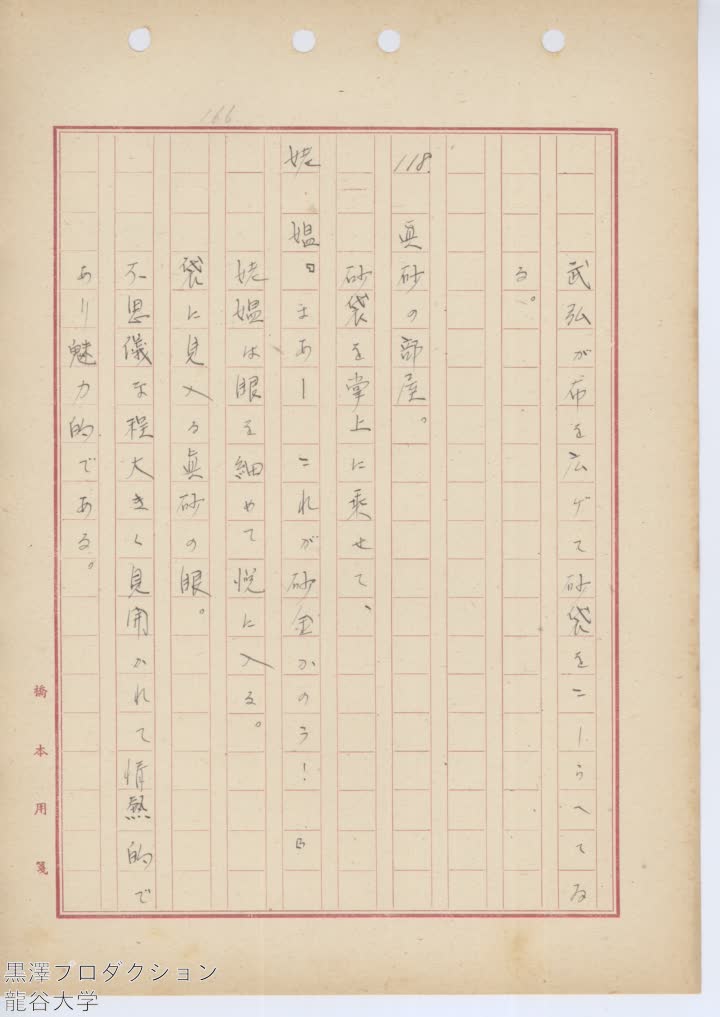 166
武弘が布を広げて砂袋をこしらへてゐ
る。
118. 真砂の部屋。
砂袋を掌上に乗せて、
姥 媼『まあー これが砂金かのう！』
姥媼は眼を細めて悦に入る。
袋に見入る眞砂の眼。
不思儀な程大きく見開かれて情熱的で
あり魅力的である。
橋本用箋
黒澤プロダクション
龍谷大学